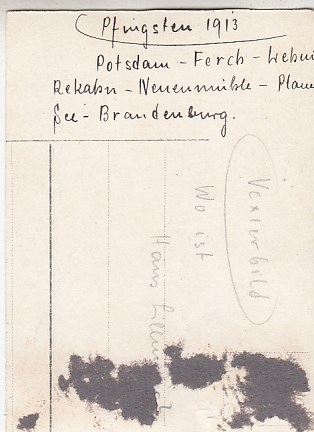 Pfingsten 1913
Potsdam - Ferch - Lehni
Rekahn - Neuenmühle - Plaue
See - Brandenburg.
Vexierbild
Wo ist
Hans